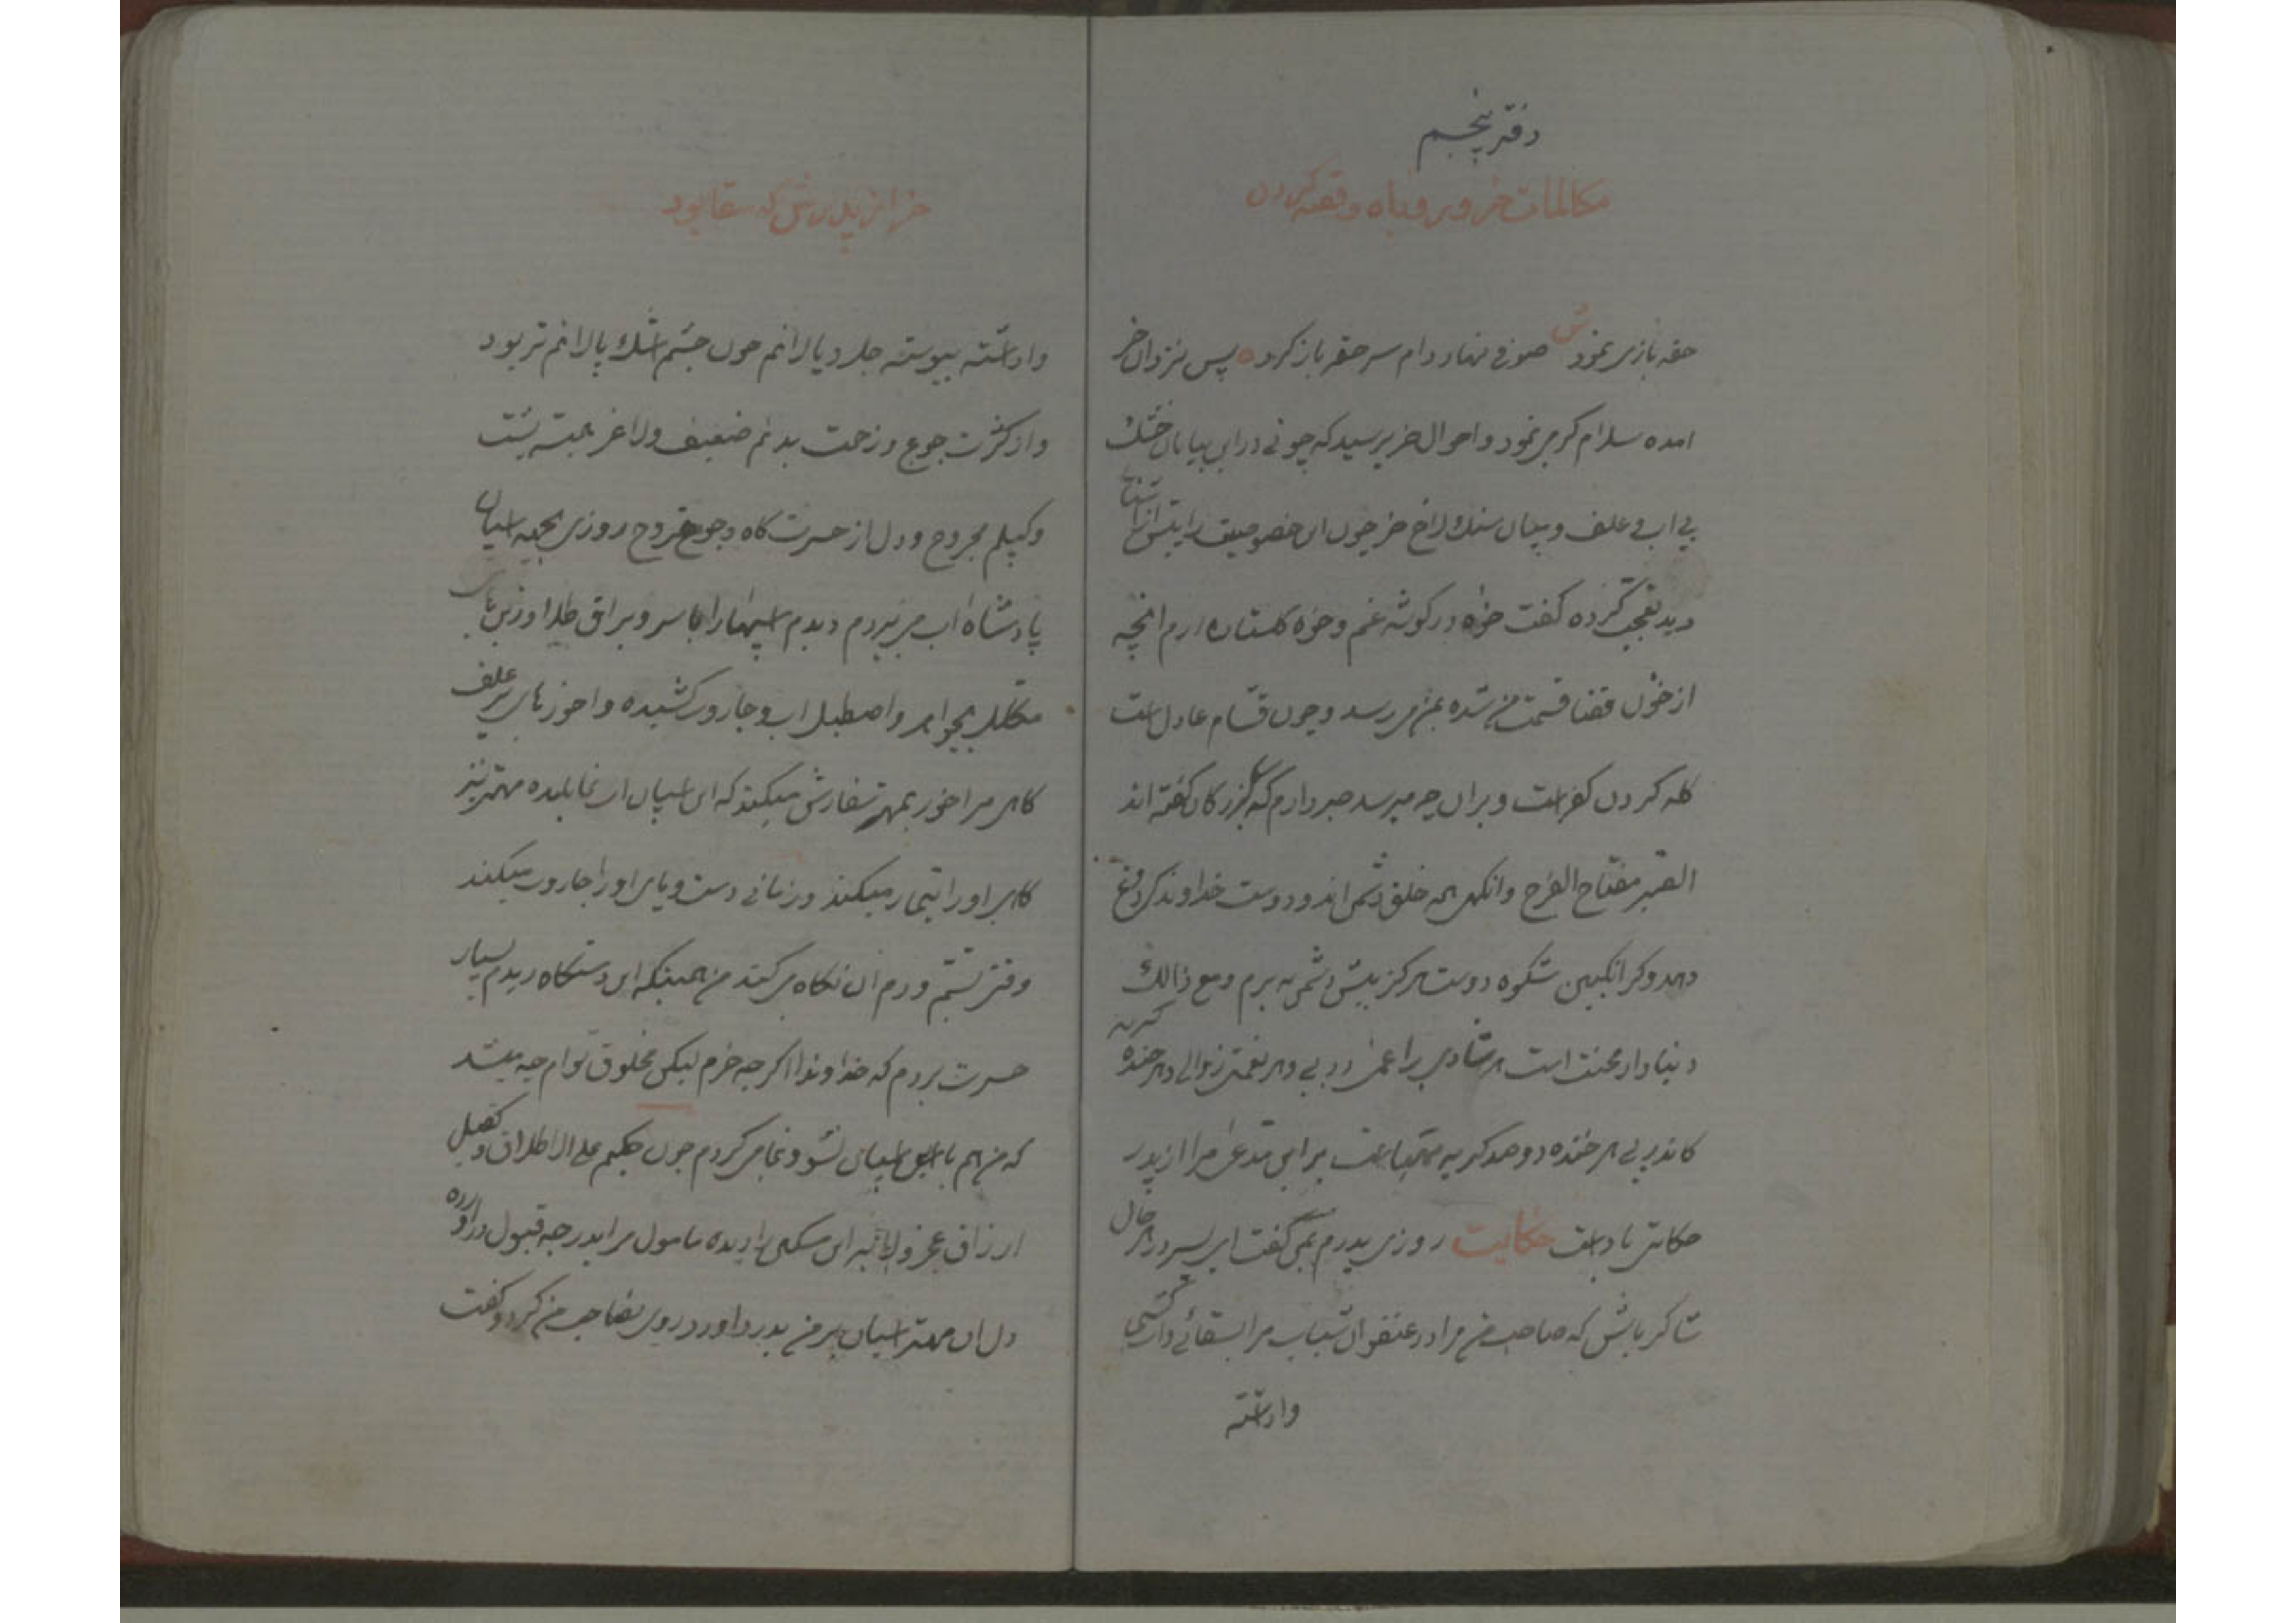 دفتر پنجم
مکالمات خر و روباه و قصه کردن
حقه بازی نمود ش صوفی نهاد دام سر حقه باز کرد ه پس نزد ان خر
امده سلام کرمی نمود و احوال خر پرسید که چونی در این بیابان خشک
بی اب و علف و میان سنك لاخ خر چون این خصوصیت را
دید تعجب کرده گفت خواه در کوشه غم و خواه کلستان ارم انچه
از خوان قضا قسمت من شده بمن میرسد و چون قسام عادل است
کله کردن کفر است و بر ان چه میرسد صبر دارم که بزرکان گفته اند
الصبر مفتاح الفرج و انکهی همه خلق دشمن اند و دوست خداوند کر دوغ
دهد و کر انکبین شکوه دوست هرکز پیش دشمن نه برم و مع ذالك
دنیا دار محنت است هر شادی را غمی در پی و هر نعمتی زوالی و هر خنده گریه
کاندر پی هر خنده دو صد کریه مهیا است بر این مدعی مرا از پدر
حکایتی یاد است حکایت روزی پدرم بمن گفت ای پسر در هر حال
شاکر باش که صاحب من مرا در عنفوان شباب مرا بسقائی
واداشته
خر از پدرش که سقا بود
واداشته پیوسته جلد و پالانم چون چشم اشك پالانم تر بود
و از کثرت جوع و زحمت بدنم ضعیف و لاغر پشت
و کپلم مجروح و دل از حسرت کاه و جو مقروح روزی بجهه اسبان
پادشاه اب می بردم دیدم اسبها را با سر و براق طلا و زین های
مکلل بجواهر و اصطبل اب و جاروب کشیده و اخورهای پر علف
کاهی میراخور بمهتر سفارش میکند که این اسبان را مهتر نیز
کاهی او را تیمار میکند و زمانی دست و پای او را جاروب میکند
وقتی بسم و دم ان نکاه می کند من همینکه این دستکاه دیدم بسیار
حسرت بردم که خداوندا اگر چه خرم لیکن مخلوق توام چه میشد
که من هم با این اسبان نشو و نما می کردم چون حکیم علی الاطلاق و کفیل
ارزاق عجز و لابه این مسکین را دیده مامول مرا بدرجه قبول در اورده
دل ان مهتر اسبان بر من بدرد اورد روی بصاحب من کرد و گفت